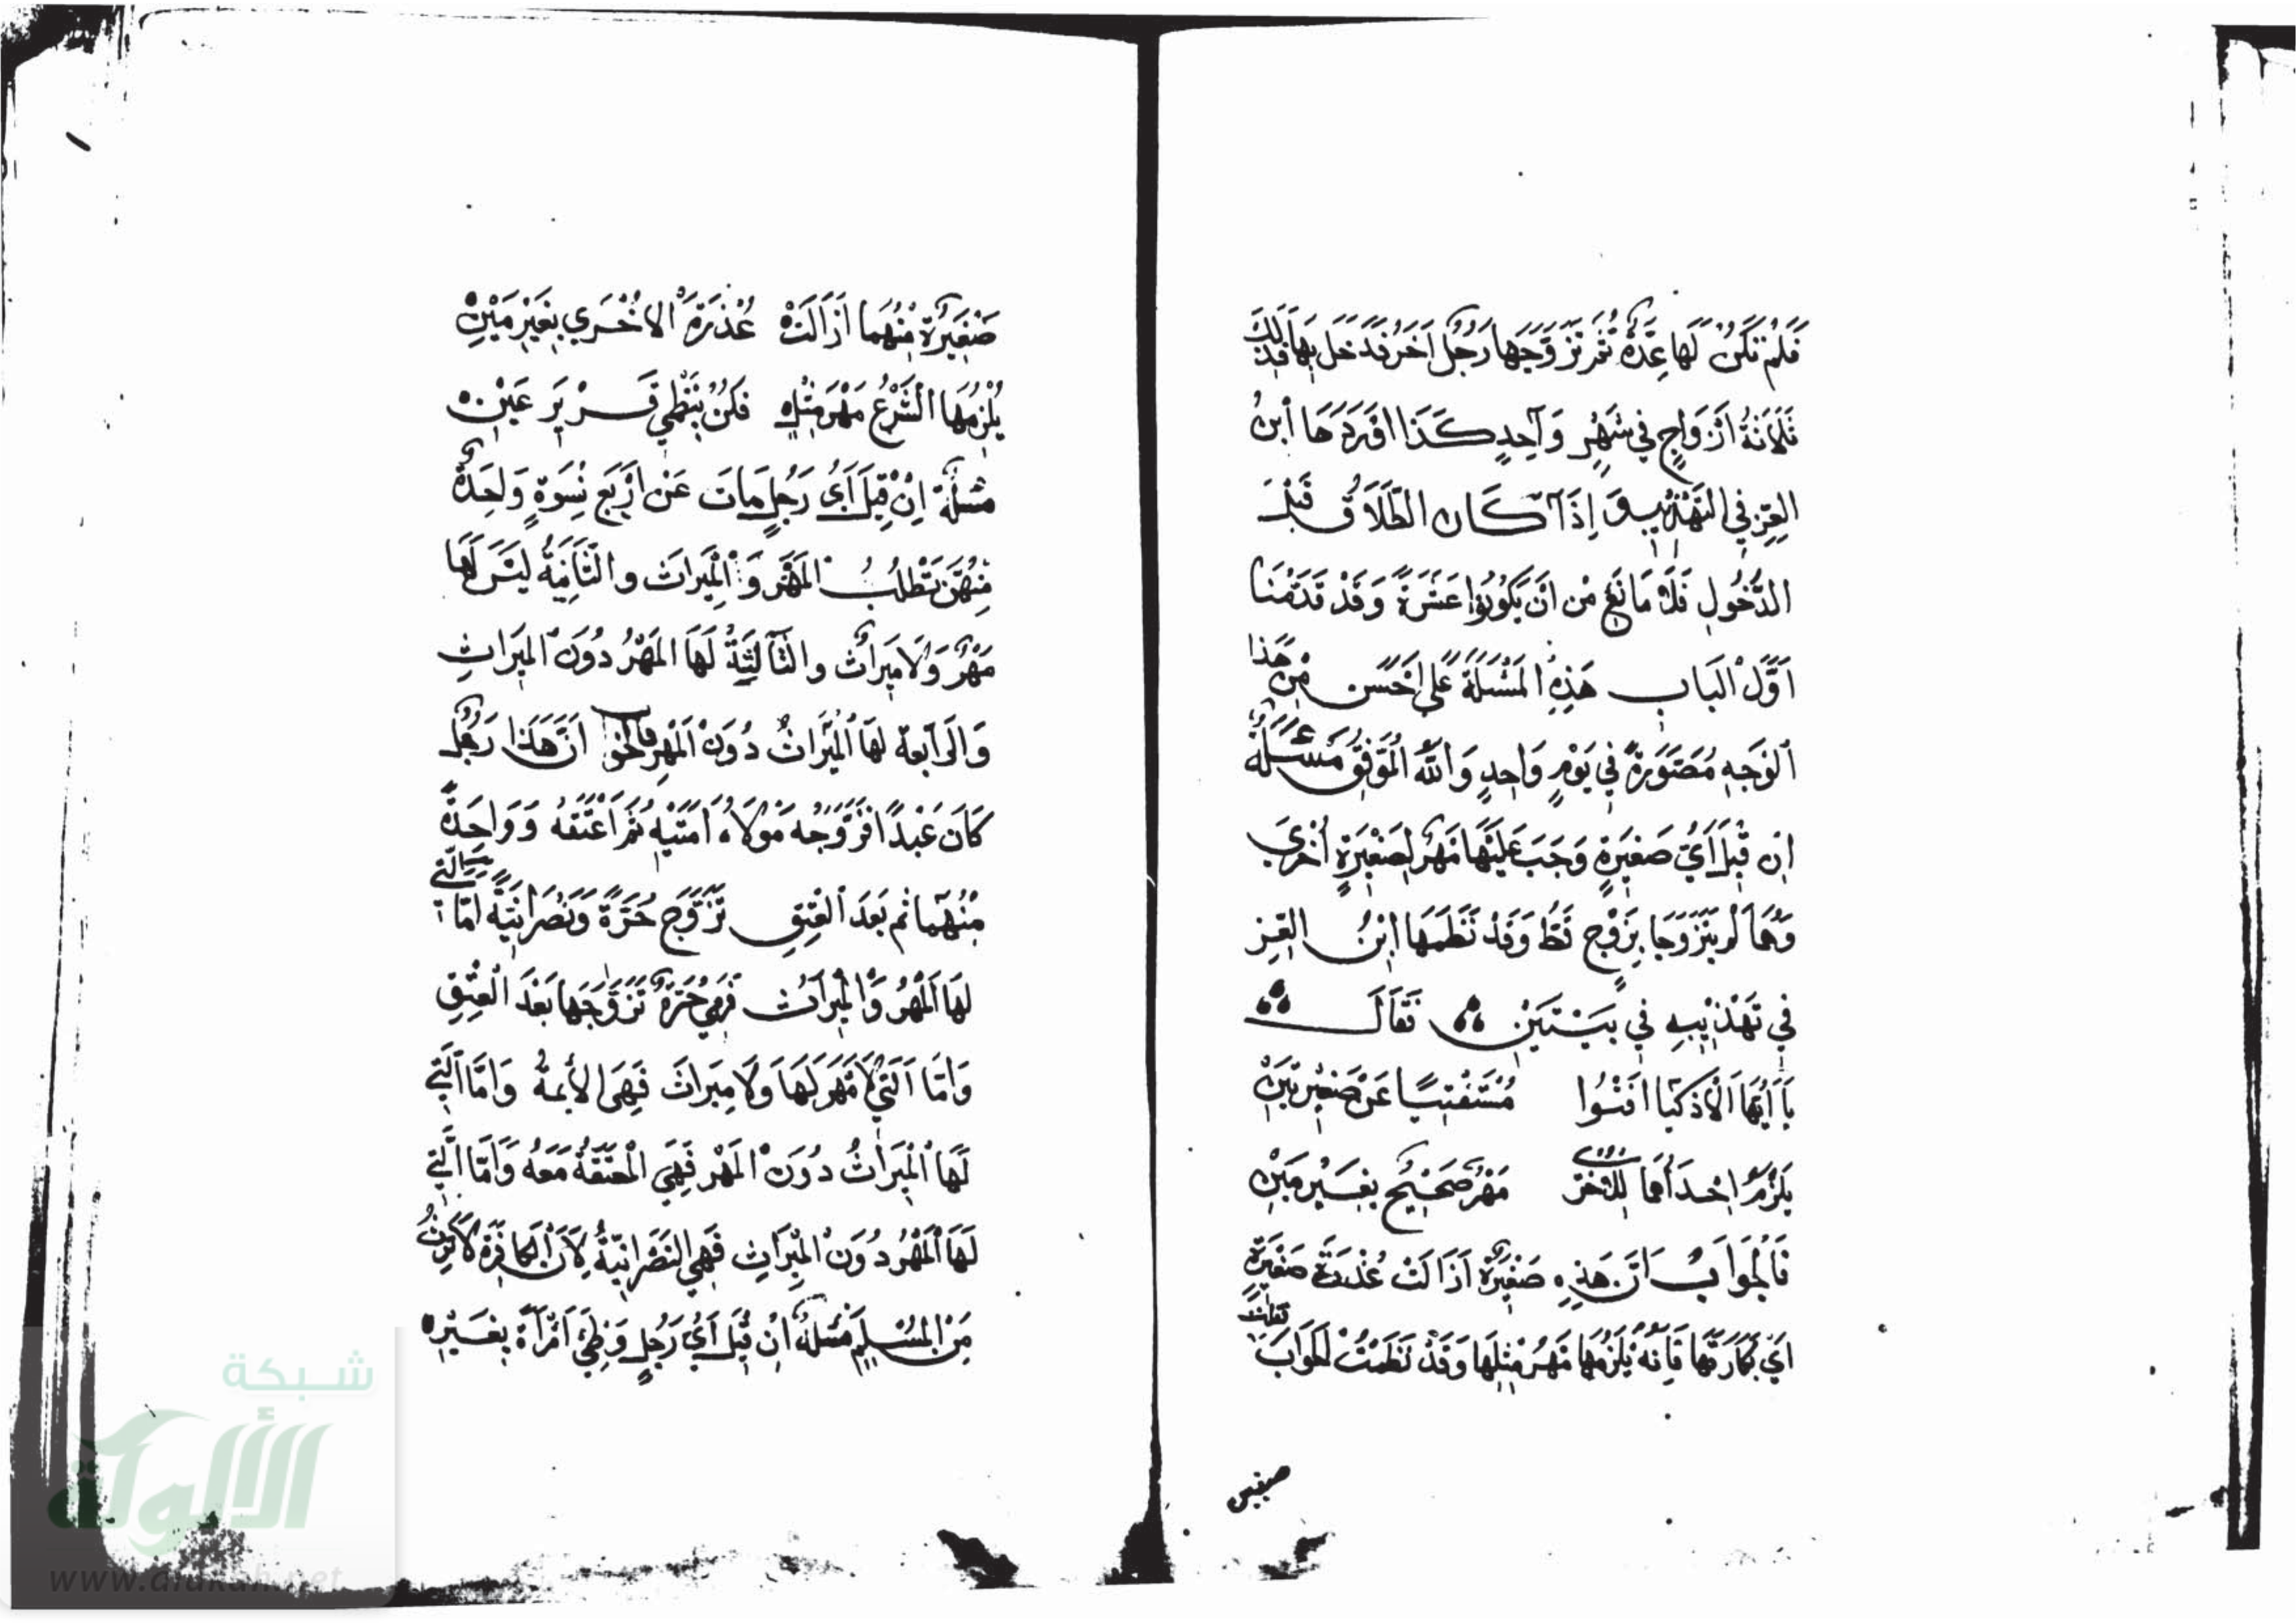 فَلَمْ تَكُنْ لَهَا عِدَّةٌ ثُمَّ تَزَوَّجَهَا رَجُلٌ آخَرُ فَدَخَلَ بِهَا فَذَلِكَ
ثَلَاثَةُ أَزْوَاجٍ فِي شَهْرٍ وَاحِدٍ كَذَا أَفْرَدَهَا ابْنُ
العِزِّ فِي التَّهْذِيبِ وَ إِذَا كَانَ الطَّلَاقُ قَبْلَ
الدُّخُولِ فَلَا مَانَعَ مِنْ أَنْ يَكُونُوا عَشَرَةً وَقَدْ قَدَّمْنَا
أَوَّلَ الْبَابِ هَذِهِ الْمَسْئَلَةَ عَلَى أَحْسَنَ مِنْ هَذَا
الْوَجْهِ مُصَوَّرَةً فِي يَوْمٍ وَاحِدٍ وَاللَّهُ الْمُوَفِّقُ مَسْئَلَةٌ
إِنْ قِيلَ أَيُّ صَغِيرَةٍ وَجَبَ عَلَيْهَا مَهْرٌ لِصَغِيرَةٍ أُخْرَى
وَهُمَا لَمْ يَتَزَوَّجَا بِزَوْجٍ قَطُّ وَقَدْ نَظَمَهَا ابْنُ العِزِّ
فِي تَهْذِيبِهِ فِي بَيْتَيْنِ فَقَالَ
يَا أَيُّهَا الْأَذْكِيَا أَفْتُوا مُسْتَفْتِيًا عَنْ صَغِيرَتَيْنِ
يَلْزَمُ إِحْدَاهُمَا لِلْأُخْرَى مَهْرٌ صَحِيحٌ بِغَيْرِ مَيْنِ
فَالْجَوَابُ أَنَّ هَذِهِ صَغِيرَةٌ أَزَالَتْ عُذْرَةَ صَغِيرَةٍ
أَيْ بَكَارَتَهَا فَإِنَّهُ يَلْزَمُهَا مَهْرُ مِثْلِهَا وَقَدْ نَظَمْتُ الْجَوَابَ فَقُلْتُ
صَغِيرَةٌ مِنْهُمَا أَزَالَتْ عُذْرَةَ الْأُخْرَى بِغَيْرِ مَيْنِ
يُلْزِمُهَا الشَّرْعُ مَهْرَ مِثْلٍ فَكُنْ بِنَظْمِي قَرِيرَ عَيْنِ
مَسْئَلَةٌ إِنْ قِيلَ أَيُّ رَجُلٍ مَاتَ عَنْ أَرْبَعِ نِسْوَةٍ وَاحِدَةٌ
مِنْهُنَّ تَطْلُبُ الْمَهْرَ وَالْمِيرَاثَ وَالثَّانِيَةُ لَيْسَ لَهَا
مَهْرٌ وَلَا مِيرَاثٌ وَالثَّالِثَةُ لَهَا الْمَهْرُ دُونَ الْمِيرَاثِ
وَالرَّابِعَةُ لَهَا الْمِيرَاثُ دُونَ الْمَهْرِ فَالْجَوَابُ أَنَّ هَذَا رَجُلٌ
كَانَ عَبْدًا فَزَوَّجَهُ مَوْلَاهُ أَمَتَيْهِ ثُمَّ أَعْتَقَهُ وَوَاحِدَةً
مِنْهُمَا ثُمَّ بَعْدَ الْعِتْقِ تَزَوَّجَ حُرَّةً وَنَصْرَانِيَّةً أَمَّا الَّتِي
لَهَا الْمَهْرُ وَالْمِيرَاثُ فَهِيَ حُرَّةٌ تَزَوَّجَهَا بَعْدَ الْعِتْقِ
وَأَمَّا الَّتِي لَا مَهْرَ لَهَا وَلَا مِيرَاثَ فَهِيَ الْأَمَةُ وَأَمَّا الَّتِي
لَهَا الْمِيرَاثُ دُونَ الْمَهْرِ فَهِيَ الْمُعْتَقَةُ مَعَهُ وَأَمَّا الَّتِي
لَهَا الْمَهْرُ دُونَ الْمِيرَاثِ فَهِيَ النَّصْرَانِيَّةُ لِأَنَّ الْكَافِرَةَ لَا تَرِثُ
مِنَ الْمُسْلِمِ مَسْئَلَةٌ إِنْ قِيلَ أَيُّ رَجُلٍ وَطِئَ امْرَأَةً بِغَيْرِهِ
شبكة
الألوكة
www.alukah.net